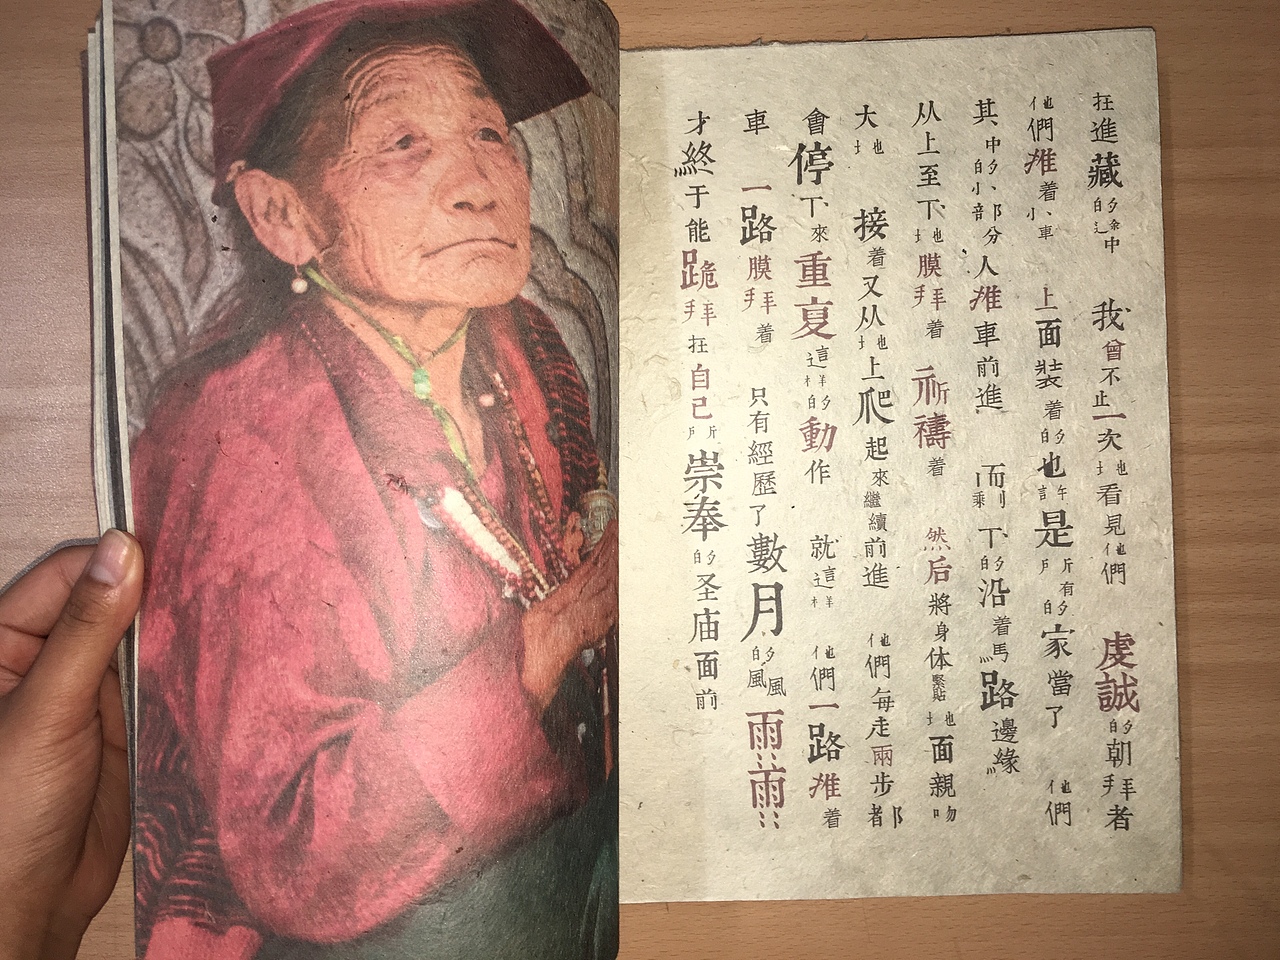 在進藏的途中 我曾不止一次地看見他們 虔誠的朝拜者
他們推着小車 上面裝着的也許是所有的家當了 他們
其中的一小部分人推車前進 而剩下的沿着馬路邊緣
从上至下地膜拜着 祈禱着 然后將身体緊貼地面親吻
大地 接着又从地上爬起來繼續前進 他們每走兩步都
會停下來重复這样的動作 就這样 他們一路推着
車 一路膜拜着 只有經歷了數月的風風雨雨
才終于能跪拜在自己所崇奉的圣庙面前